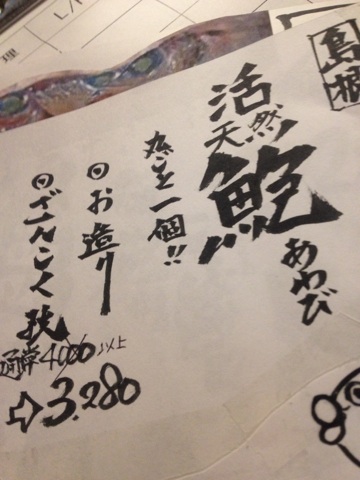 島根
活
天然
鮑
あわび
丸ごと一個!!
お造り
ざんこく焼
通常4000以上
⇨3,280